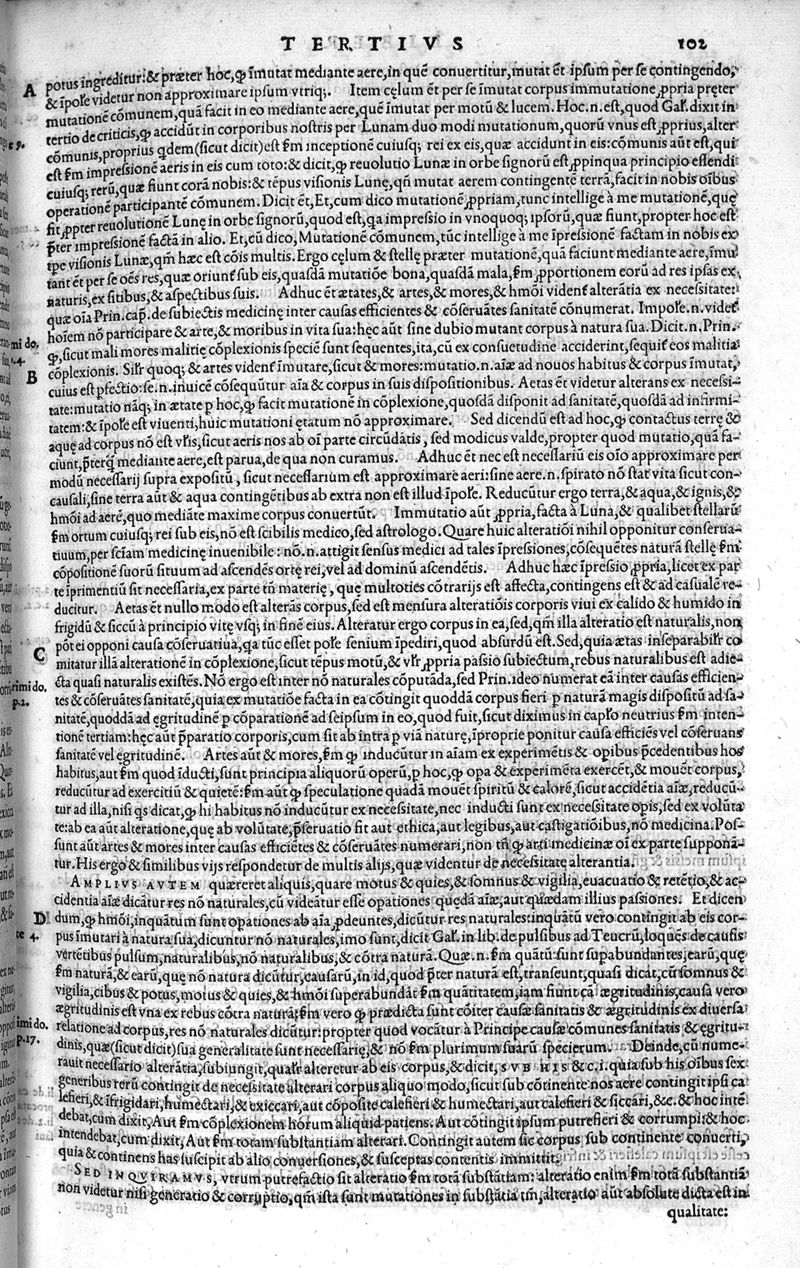 TERTIVS 102
A potus ingreditur: & præter hoc, ꝙ îmutat mediante aere, in quê conuertitur, mutat êt ipsum per se contingendo,
& îpoſe videtur non approximare ipsum vtriq;. Item cęlum êt per se îmutat corpus immutatione ꝓpria pręter
mutationê cômunem, quâ facit in eo mediante aere, quê îmutat per motû & lucem. Hoc.n.est, quod Gal. dixit in
tertio de criticis, ꝙ accidût in corporibus nostris per Lunam duo modi mutationum, quorû vnus est ꝓprius, alter
cômunis, proprius qdem (sicut dicit) est ſm inceptionê cuiusq; rei ex eis, quæ accidunt in eis: cômunis aût est, qui
est ſm impressionê aeris in eis cum toto: & dicit, ꝙ reuolutio Lunæ in orbe signorû est ꝓpinqua principio essendi
cuiusq; rerû, quæ fiunt corâ nobis: & têpus visionis Lunę, qñ mutat aerem contingentê terrâ, facit in nobis oîbus
operationê participantê cômunem. Dicit êt, Et, cum dico mutationê ꝓpriam, tunc intellige à me mutationê, quę
fit ꝓpter reuolutionê Lunę in orbe signorû, quod est, qa impressio in vnoquoq; ipsorû, quæ fiunt, propter hoc est
p̄ter impressionê factâ in alio. Et, cû dico, Mutationê cômunem, tûc intellige à me îpressionê factam in nobis ex
tpe visionis Lunæ, qm̃ hæc est côis multis. Ergo cęlum & stellę præter mutationê, quâ faciunt mediante aere, îmu
tant êt per se oês res, quæ oriunt sub eis, quasdâ mutatiôe bona, quasdâ mala, ſm ꝓportionem eorû ad res ipsas ex
naturis, ex sitibus, & aspectibus suis. Adhuc êt ætates, & artes, & mores, & hmôi vident alterâtia ex necessitate:
quæ oîa Prin. cap̃. de subiectis medicinę inter causas efficientes & côseruâtes sanitatê cônumerat. Impoſe.n. videt
hoîem nô participare & arte, & moribus in vita sua: hęc aût sine dubio mutant corpus à natura sua. Dicit.n. Prin.
ꝙ, sicut mali mores malitię côplexionis speciê sunt sequentes, ita, cû ex consuetudine acciderint, sequit eos malitia
B côplexionis. Silr quoq; & artes vident îmutare, sicut & mores: mutatio.n. aîæ ad nouos habitus & corpus îmutat,
cuius est ꝑfectio: se.n. inuicê côsequûtur aîa & corpus in suis dispositionibus. Aetas êt videtur alterans ex necessi-
tate: mutatio nâq; in ætate p hoc, ꝙ facit mutationê in côplexione, quosdâ disponit ad sanitatê, quosdâ ad infirmi-
tatem: & îpoſe est viuenti, huic mutationi ętatum nô approximare. Sed dicendû est ad hoc, ꝙ contactus terrę &
aquę ad corpus nô est vſis, sicut aeris nos ab oî parte circûdâtis, sed modicus valde, propter quod mutatio, quâ fa-
ciunt, p̄terq̃ mediante aere, est parua, de qua non curamus. Adhuc êt nec est necessariû eis oîo approximare per
modû necessarij supra expositû, sicut necessarium est approximare aeri: sine aere.n. spirato nô stat vita sicut con-
causali, sine terra aût & aqua contingêtibus ab extra non est illud îpoſe. Reducûtur ergo terra, & aqua, & ignis, &
hmôi ad aerê, quo mediâte maxime corpus conuertût. Immutatio aût ꝓpria, facta à Luna, & qualibet stellarû
ſm ortum cuiusq; rei sub eis, nô est scibilis medico, sed astrologo. Quare huic alteratiôi nihil opponitur conserua-
tiuum, per sciêam medicinę inuenibile: nô.n. attigit sensus medici ad tales îpressiones, côsequêtes naturâ stellę ſm
côpositionê suorû situum ad ascendês ortę rei, vel ad dominû ascendêtis. Adhuc hæc îpressio ꝓpria, licet ex par
te îprimentiû sit necessaria, ex parte tñ materię, quę multoties côtrarijs est affecta, contingens est & ad casualê re-
ducitur. Aetas êt nullo modo est alterâs corpus, sed est mensura alteratiôis corporis viui ex calido & humido in
frigidû & siccû à principio vitę vsq; in finê eius. Alteratur ergo corpus in ea, sed, qm̃ illa alteratio est naturalis, non
C pôt ei opponi causa côseruatiua, qa tûc esset poſe senium îpediri, quod absurdû est. Sed, quia ætas inseparabilr co
mitatur illâ alterationê in côplexione, sicut têpus motû, & vſr ꝓpria passio subiectum, rebus naturalibus est adie-
cta quasi naturalis existês. Nô ergo est inter nô naturales côputâda, sed Prin. ideo numerat eâ inter causas efficien-
tes & côseruâtes sanitatê, quia ex mutatiôe facta in ea côtingit quoddâ corpus fieri p naturâ magis dispositû ad sa-
nitatê, quoddâ ad ęgritudinê p côparationê ad seipsum in eo, quod fuit, sicut diximus in capſo neutrius ſm inten-
tionê tertiam: hęc aût p̄paratio corporis, cum sit ab intra p viâ naturę, îproprie ponitur causa efficiês vel côseruans
sanitatê vel egritudinê. Artes aût & mores, ſm ꝙ inducûtur in aîam ex experimêtis & opîbus p̄cedentibus hos
habitus, aut ſm quod îducti, sunt principia aliquorû operû, p hoc, ꝙ opa & experimêta exercêt, & mouêt corpus,
reducûtur ad exercitiû & quietê: ſm aût ꝙ speculatione quadâ mouêt spiritû & calorê, sicut accidêtia aîæ, reducû-
tur ad illa, nisi qs dicat, ꝙ hi habitus nô inducûtur ex necessitate, nec inducti sunt ex necessitate opîs, sed ex volûta
te: ab ea aût alteratione, quę ab volûtate, p̄seruatio fit aut ethica, aut legibus, aut castigatiôibus, nô medicina. Pos-
sunt aût artes & mores inter causas efficiêtes & côseruâtes numerari, non tñ ꝙ arti medicinæ oî ex parte supponâ-
tur. His ergo & similibus vijs respondetur de multis alijs, quæ videntur de necessitate alterantia.
AMPLIVS AVTEM quæreret aliquis, quare motus & quies, & somnus & vigilia, euacuatio & retêtio, & ac-
cidentia aîæ dicâtur res nô naturales, cû videâtur esse opationes quędâ aîæ, aut quædam illius passiones. Et dicen
D dum, ꝙ hmôi, inquâtum sunt opationes ab aîa ꝓdeuntes, dicûtur res naturales: inquâtû vero contingit ab eis cor-
pus îmutari à natura sua, dicuntur nô naturales, imo sunt, dicit Gal. in lib. de pulsibus ad Teucrû, loquês de causis
vertêtibus pulsum, naturalibus, nô naturalibus, & côtra naturâ. Quæ.n. ſm quâtû sunt supabundantes earû, quę
ſm naturâ, & earû, quę nô natura dicûtur, causarû, in id, quod p̄ter naturâ est, transeunt, quasi dicât, cû somnus &
vigilia, cibus & potus, motus & quies, & hmôi superabundât ſm quâtitatem, iam fiunt câ ægritudinis, causa vero
ægritudinis est vna ex rebus côtra naturâ: ſm vero ꝙ prædicta sunt côiter causæ sanitatis & ægritudinis ex diuersa
relatione ad corpus, res nô naturales dicûtur: propter quod vocâtur à Principe causæ cômunes sanitatis & ęgritu-
dinis, quæ (sicut dicit) sua generalitate sunt necessarię, & nô ſm plurimum suarû specierum. Deinde, cû nume-
rauit necessario alterâtia, subiungit, qualr alteretur ab eis corpus, & dicit, SVB HIS & c. i. quia sub his oîbus sex
generibus rerû contingit de necessitate alterari corpus aliquo modo, sicut sub côtinente nos aere contingit ipsi ca
lefieri, & îfrigidari, humectari, & exiccari, aut côposite calefieri & humectari, aut calefieri & siccari, &c. & hoc intê
debat, cum dixit, Aut ſm côplexionem horum aliquid patiens. Aut côtingit ipsum putrefieri & corrumpi: & hoc
intendebat, cum dixit, Aut ſm totam substantiam alterari. Contingit autem sic corpus sub continente conuerti,
quia & continens has suscipit ab alio conuersiones, & susceptas contentis immittit.
SED INQVIRAMVS, vtrum putrefactio sit alteratio ſm totâ substâtiam: alteratio enim ſm totâ substantiâ
non videtur nisi generatio & corruptio, qm̃ ista sunt mutationes in substâtia tm̃, alteratio aût absolute dicta est in
qualitate: